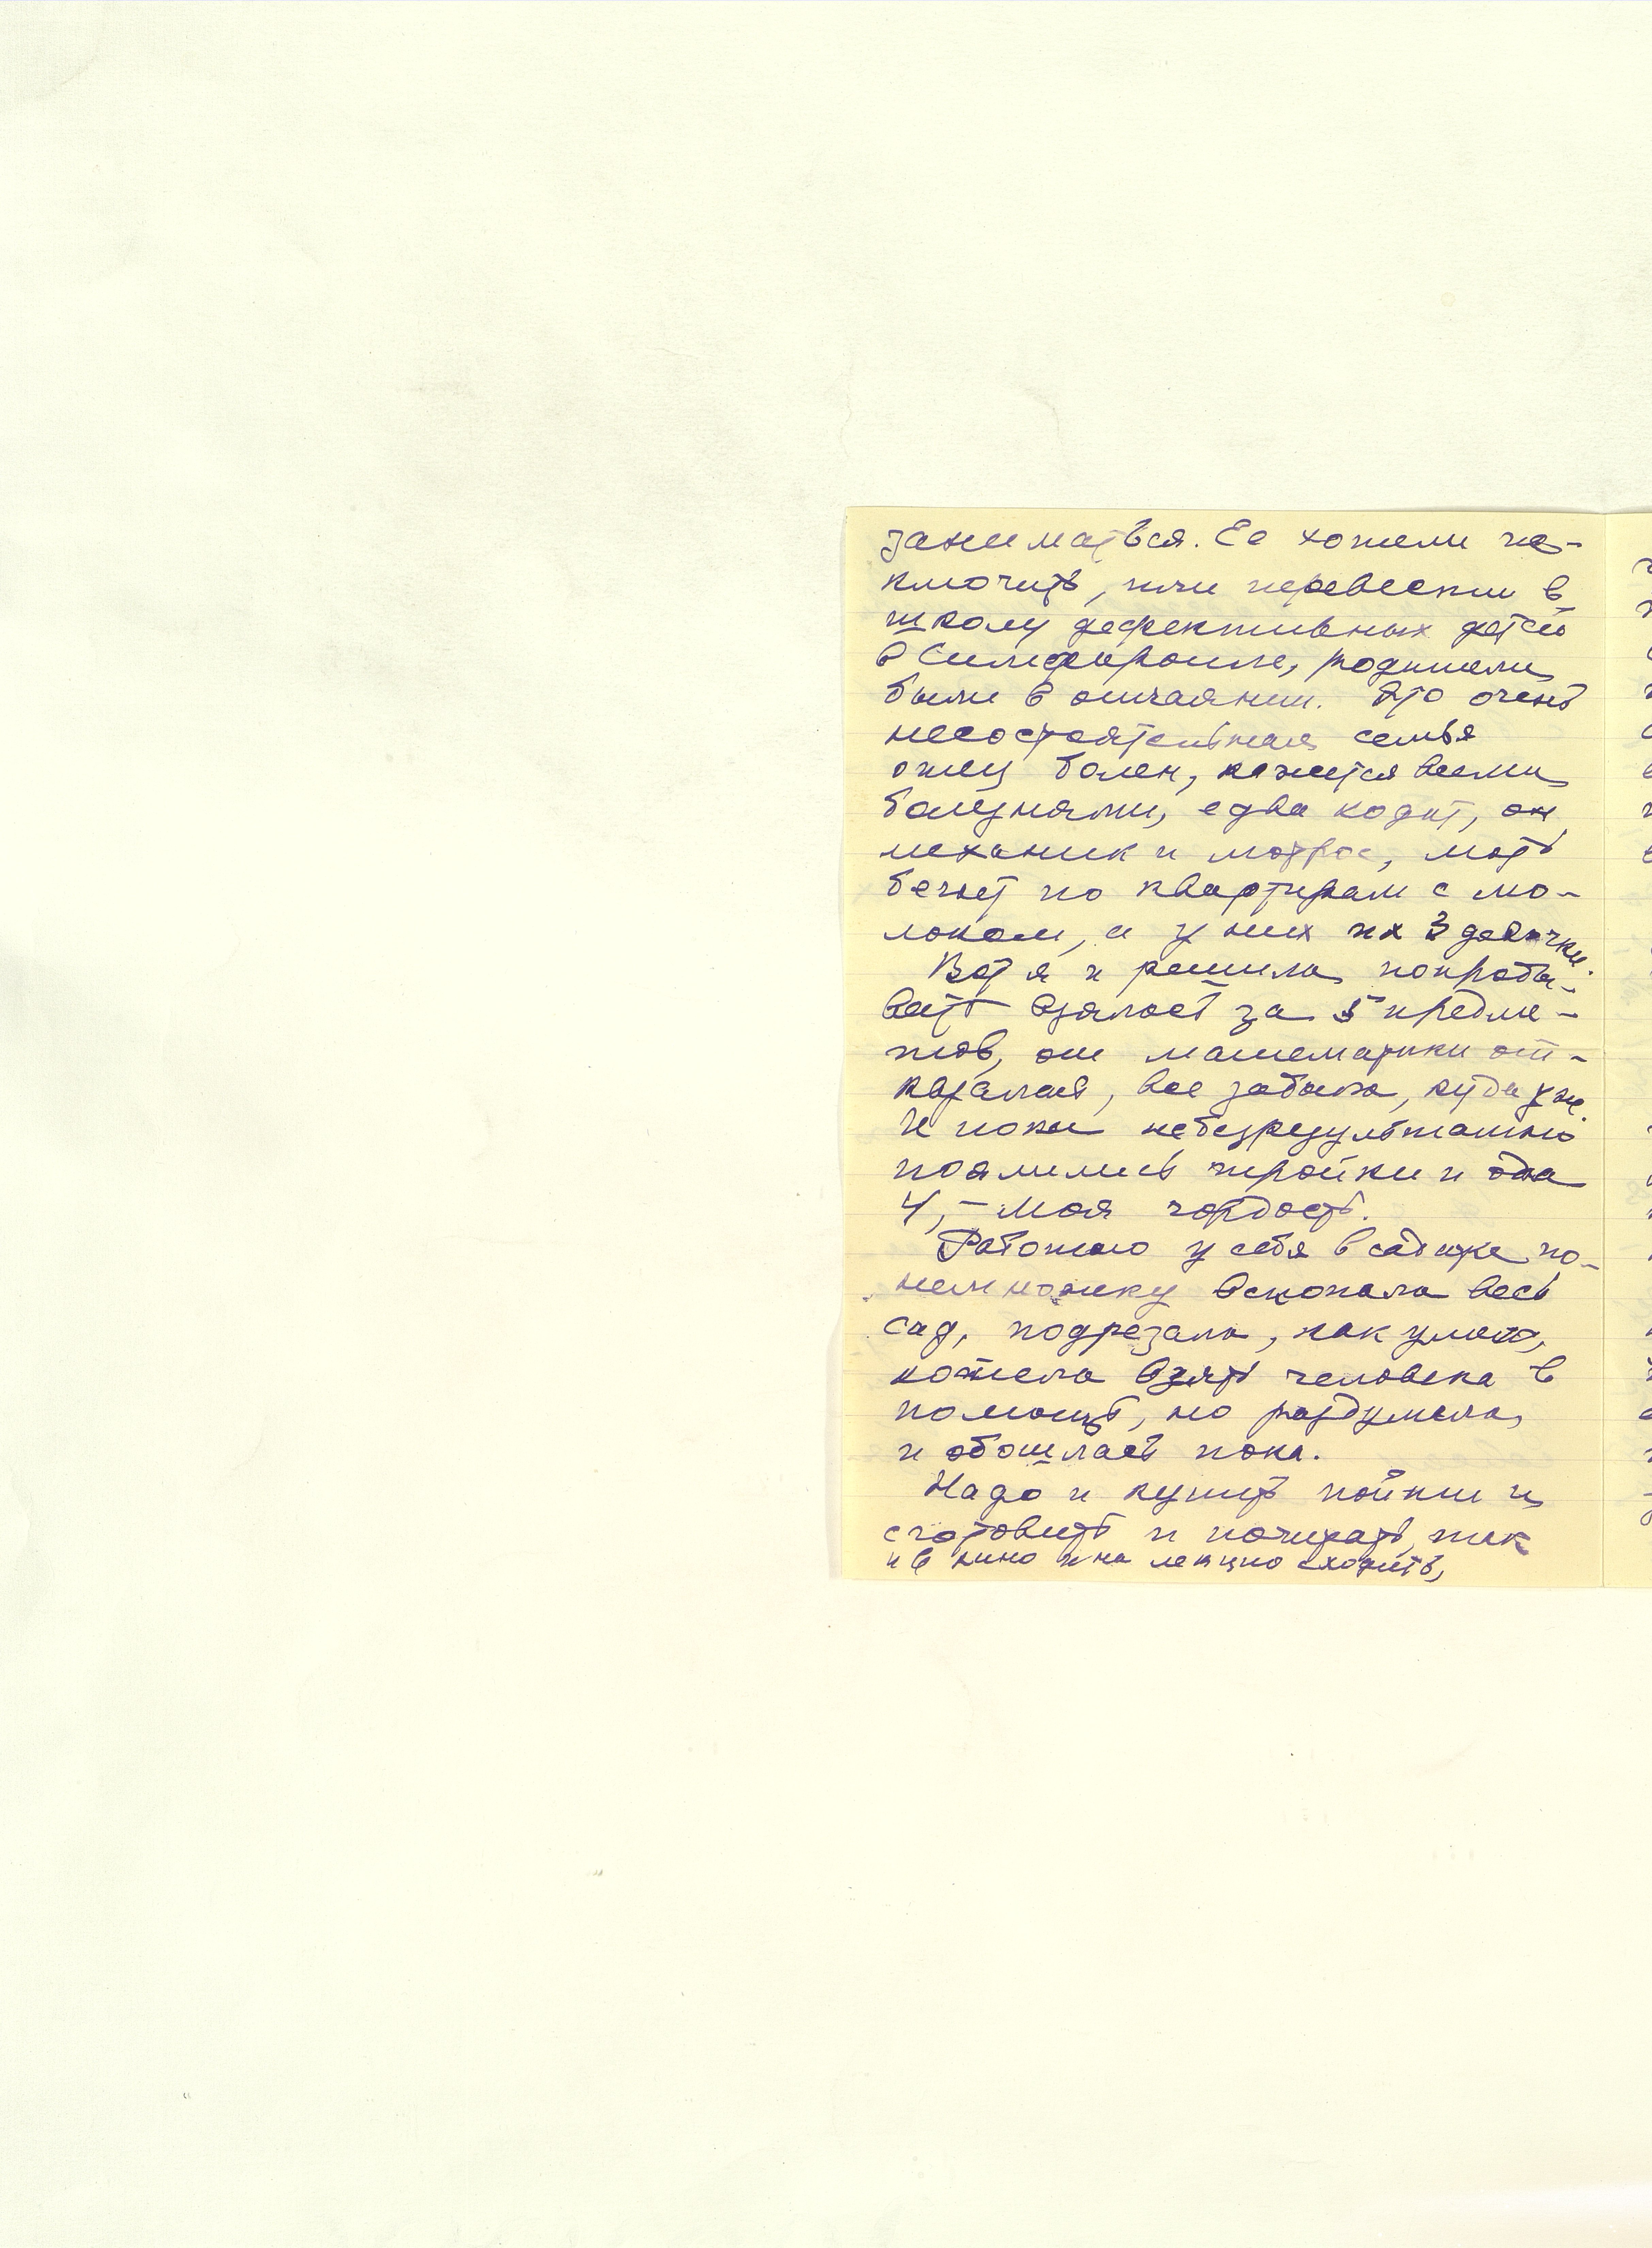 заниматься. Ее хотели ис-
ключить, или перевести в
школу дефективных детей
в Симферополе, родители
были в отчаянии. Это очень
несостоятельная семья
отец болен, кажется всеми
болезнями, едва ходит, он
механик и матрос, мать
бегает по квартирам с мо-
локом, а у них их 3 девочки.
Вот я и решила попробы-
вать взялась за 5 предме-
тов, от математики от-
казалась, все забыла, куда уже.
И пока небезрезультатно
поялились тройки и одна
4, – моя гордость.
Работаю у себя в садике по-
немножку вскопала весь
сад, подрезала, как умею,
хотела взять человека в
помощь, но раздумала,
и обошлась пока.
Надо и купить пойти и
сготовить и постирать, так
и в кино и на лекцию сходить,